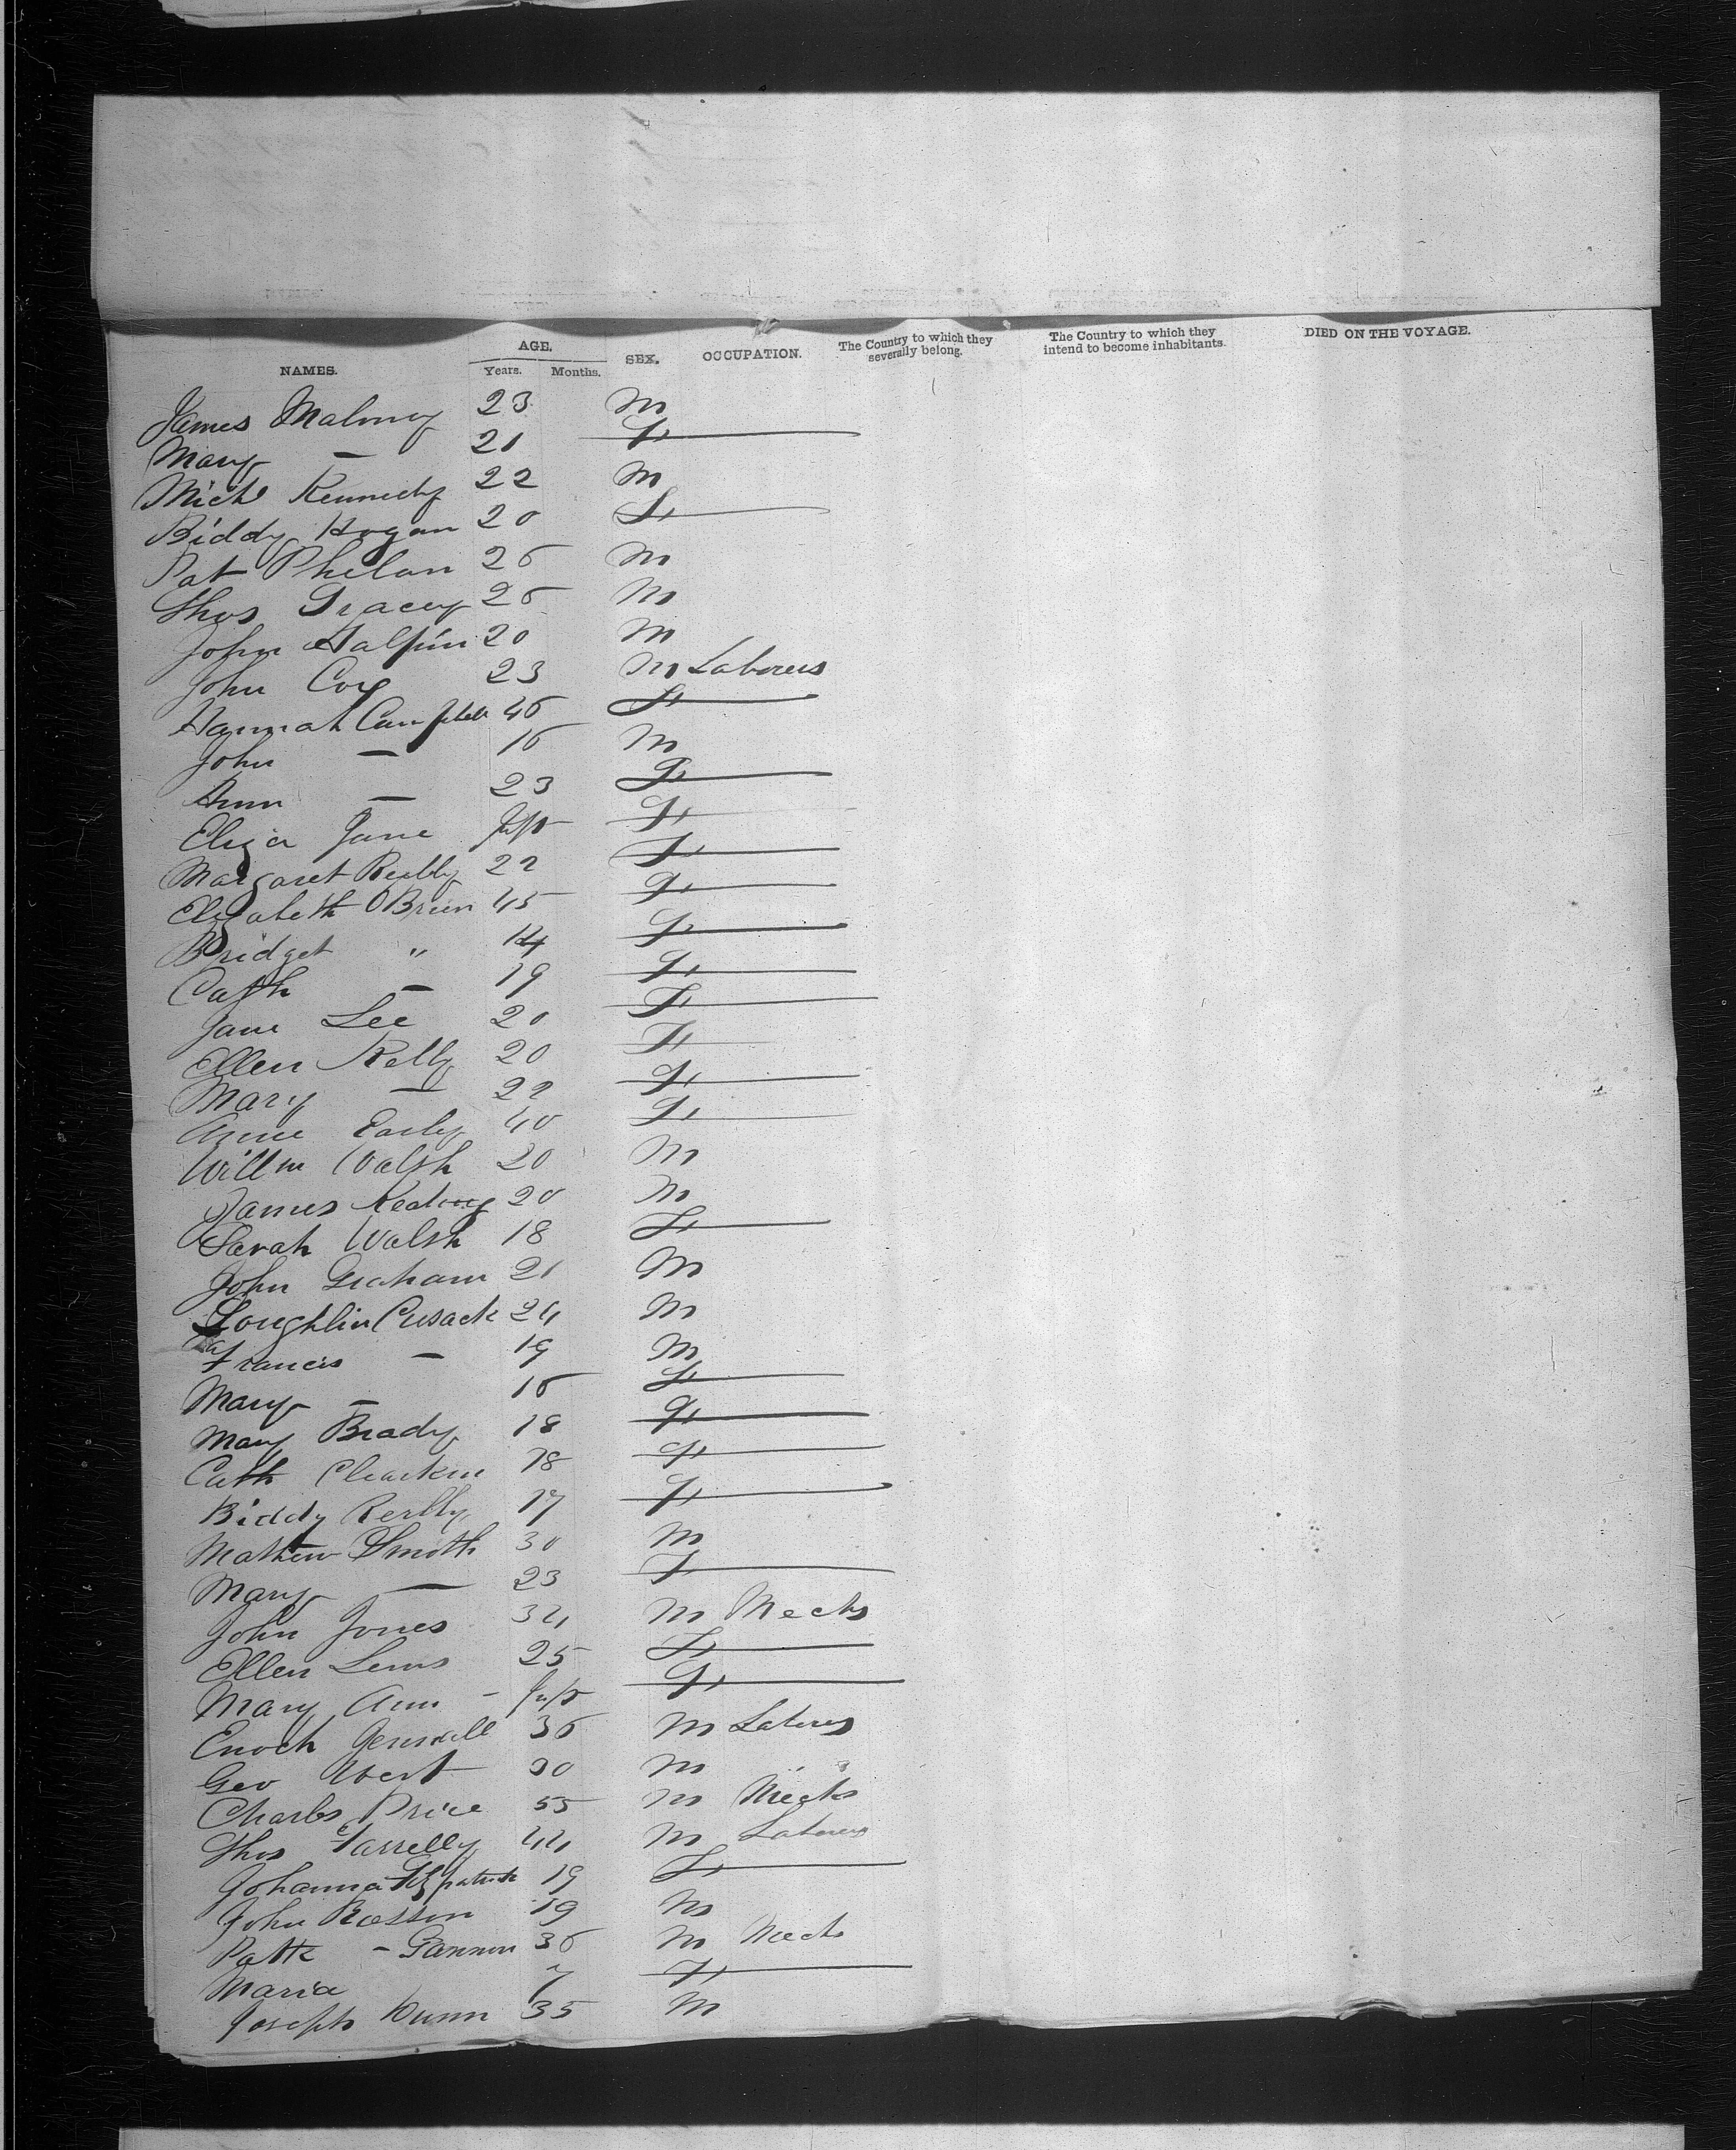 NAMES. AGE. Years. Months. SEX. OCCUPATION. The Country to which they severally belong. The Country to which they intend to become inhabitants. DIED ON THE VOYAGE.
James Maloney 23 M
Mary — 21 F
Mich Kennedy 22 M
Biddy Hogan 20 F
Pat Phelan 26 M
Thos Tracey 26 M
John Halpin 20 M
John Coy 23 M Laborers
Hannah Campbell 46 F
John — 16 M
Ann — 23 F
Eliza Jane Inft F
Margaret Reilly 22 F
Elizabeth OBrien 45 F
Bridget " 14 F
Cath — 19 F
Jane Lee 20 F
Ellen Kelly 20 F
Mary — 22 F
Anne Early 40 F
Willm Walsh 20 M
James Keating 20 M
Sarah Walsh 18 F
John Graham 21 M
Loughlin Cusack 24 M
Francis — 19 M
Mary — 16 F
Mary Brady 18 F
Cath Clarkin 18 F
Biddy Reilly 17 F
Mathew Smith 30 M
Mary — 23 F
John Jones 34 M Mechs
Ellen Lewis 25 F
Mary Ann — Inft F
Enoch 36 M Laborers
Geo West 30 M "
Charles Price 55 M Mechs
Thos Farrelly 44 M Laborers
Johanna Fitzpatrick 19 F
John Rosson 19 M
Patk - Gannon 36 M Mechs
Maria 7 F
Joseph Dunn 35 M